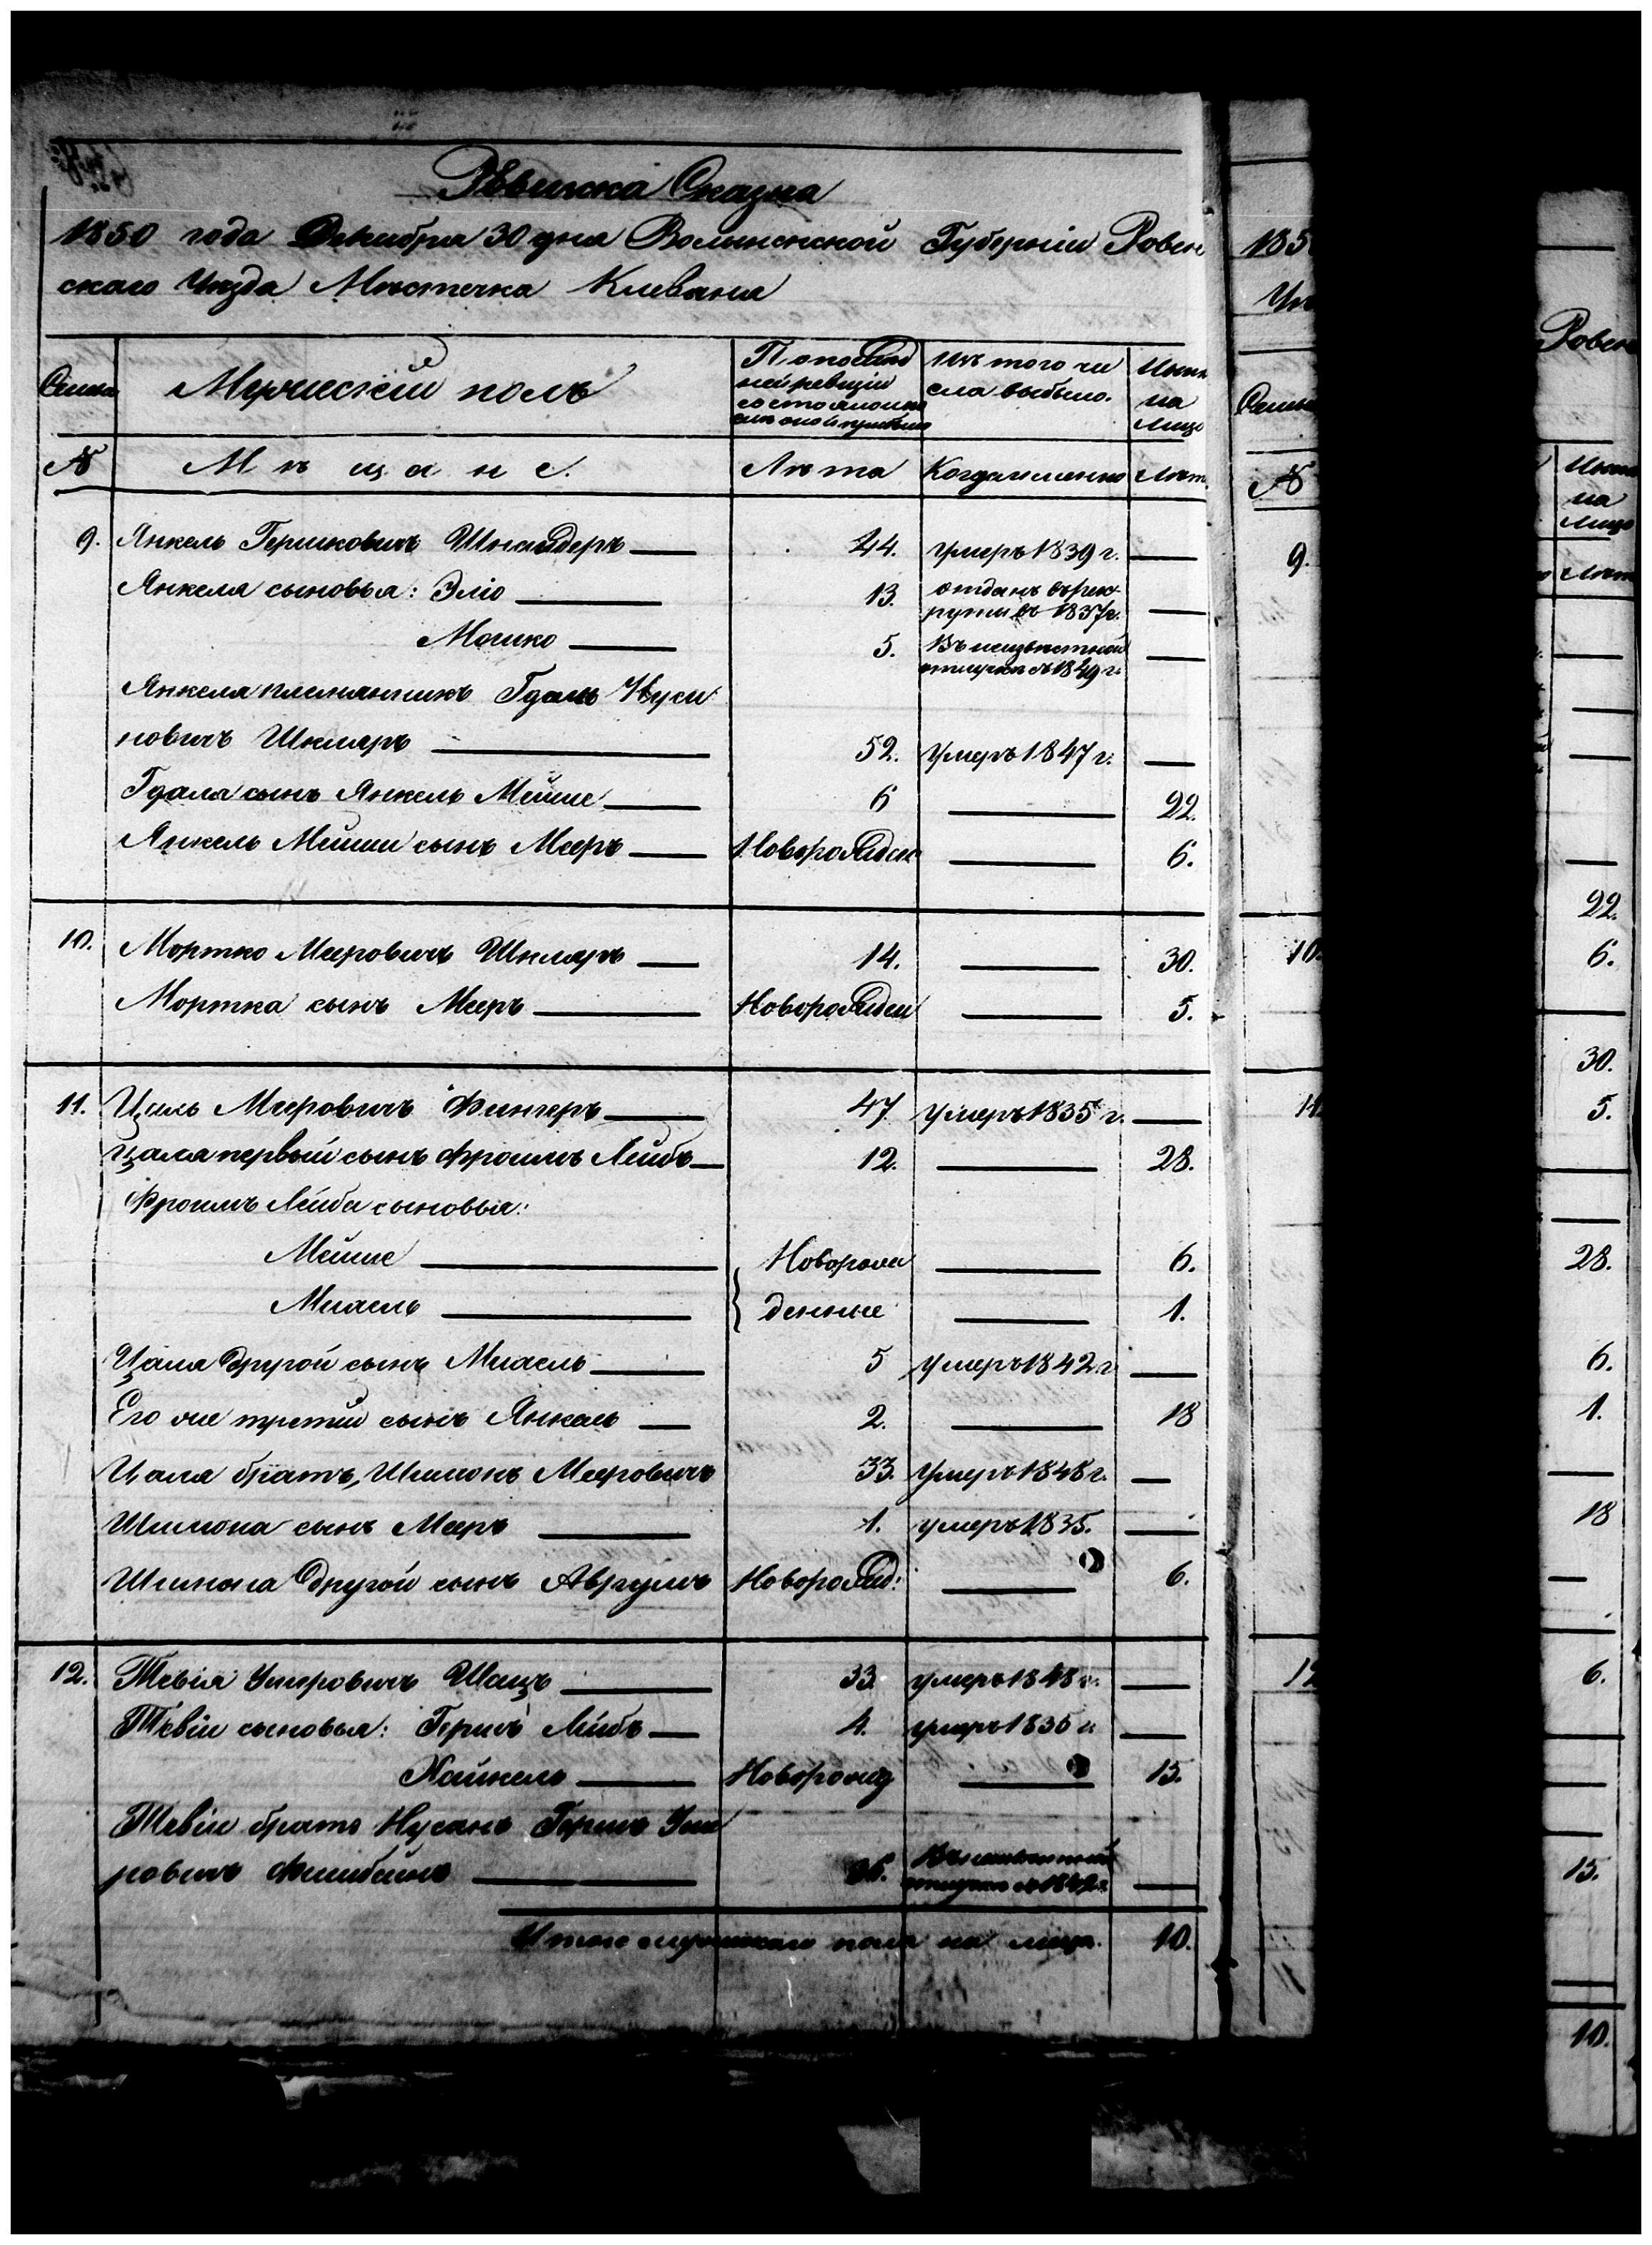 Ревижка Сказка
1850 года Декабря 30 дня Волынской Губерніи Ровен
скаго Уѣзда Мѣстечка Клеваня
Семьи
Мужескій полъ
По послѣд
ней ревизіи
состояло
Изъ того чи
сла выбыло.
Нынѣ
на
лицо
№
Мѣщане.
Лѣта
Когда именно
Лѣт.
9. Янкель Гершковичъ Шнайдеръ 44. умеръ 1839 г.
Янкеля сыновья: Эліо 13. отданъ въ рек
руты въ 1837 г.
Мошко 5. Въ неизвѣстной
отлучкѣ съ 1849 г.
Янкеля племянникъ Гдаль Нуси
новичъ Шкляръ 52. умеръ 1847 г.
Гдаля сынъ Янкель Мейше 6 22.
Янкель Мейши сынъ Мееръ Новорожден 6.
10. Мортко Мееровичъ Шкляръ 14. 30.
Мортка сынъ Мееръ Новорожден 5.
11. Цаль Мееровичъ Фингеръ 47 умеръ 1835 г.
Цаля первый сынъ Фроимъ Лейбъ 12. 28.
Фроимъ Лейба сыновья:
Мейше Новорож 6.
Михель денные 1.
Цаля другой сынъ Михель 5 умеръ 1842 г.
Его же третій сынъ Янкель 2. 18
Цаля братъ, Шимонъ Мееровичъ 33. умеръ 1848 г.
Шимона сынъ Мееръ 1. умеръ 1835.
Шимона другой сынъ Аврумъ Новорожд: 6.
12. Тевія Умеровичъ Шацъ 33. умеръ 1848 г.
Тевіи сыновья: Гершъ Лейбъ 4. умеръ 1835 г.
Хайкель Новорожд 15.
Тевіи братъ Нусанъ Гершъ Уме
ровичъ Фишбейнъ
отлучкѣ съ 1842 г.
Итого мужескаго пола на лицо. 10.
185
Уѣ
Семьи
№
9.
10.
11
12
Ровен
Нынѣ
на
лицо
Лѣт
22.
6.
30.
5.
28.
6.
1.
18
6.
15.
10.